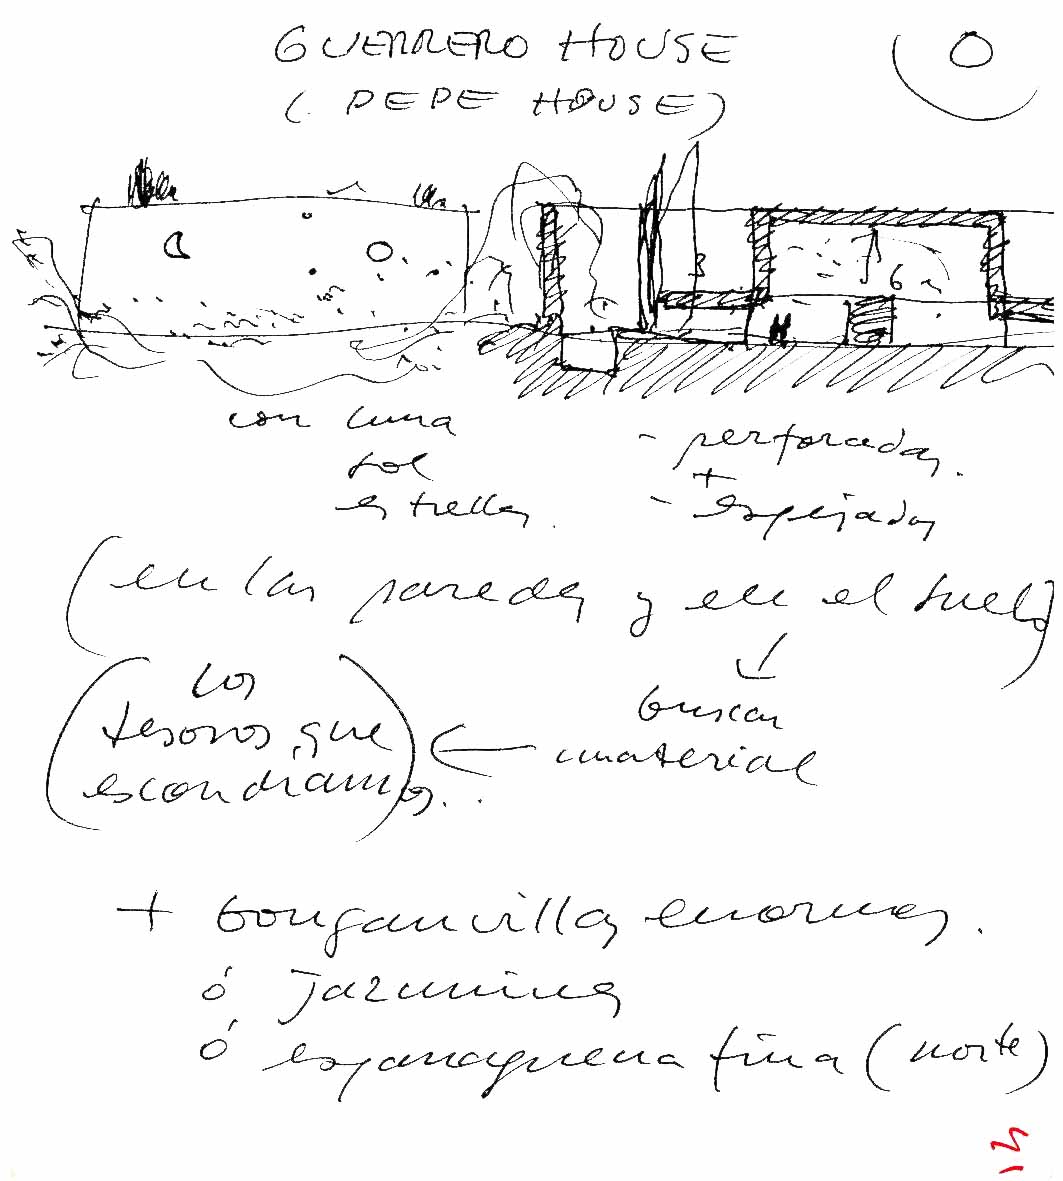 GUERRERO HOUSE
(PEPE HOUSE)
0
3
6 m
con luna
sol
estrellas.
- perforadas.
+
- espejadas
(en las paredes y en el suelo)
buscar
material
(los
tesoros que
escondíamos...)
+ bouganvillas enormes.
ó jazmines
ó esparraguera fina (norte)
13